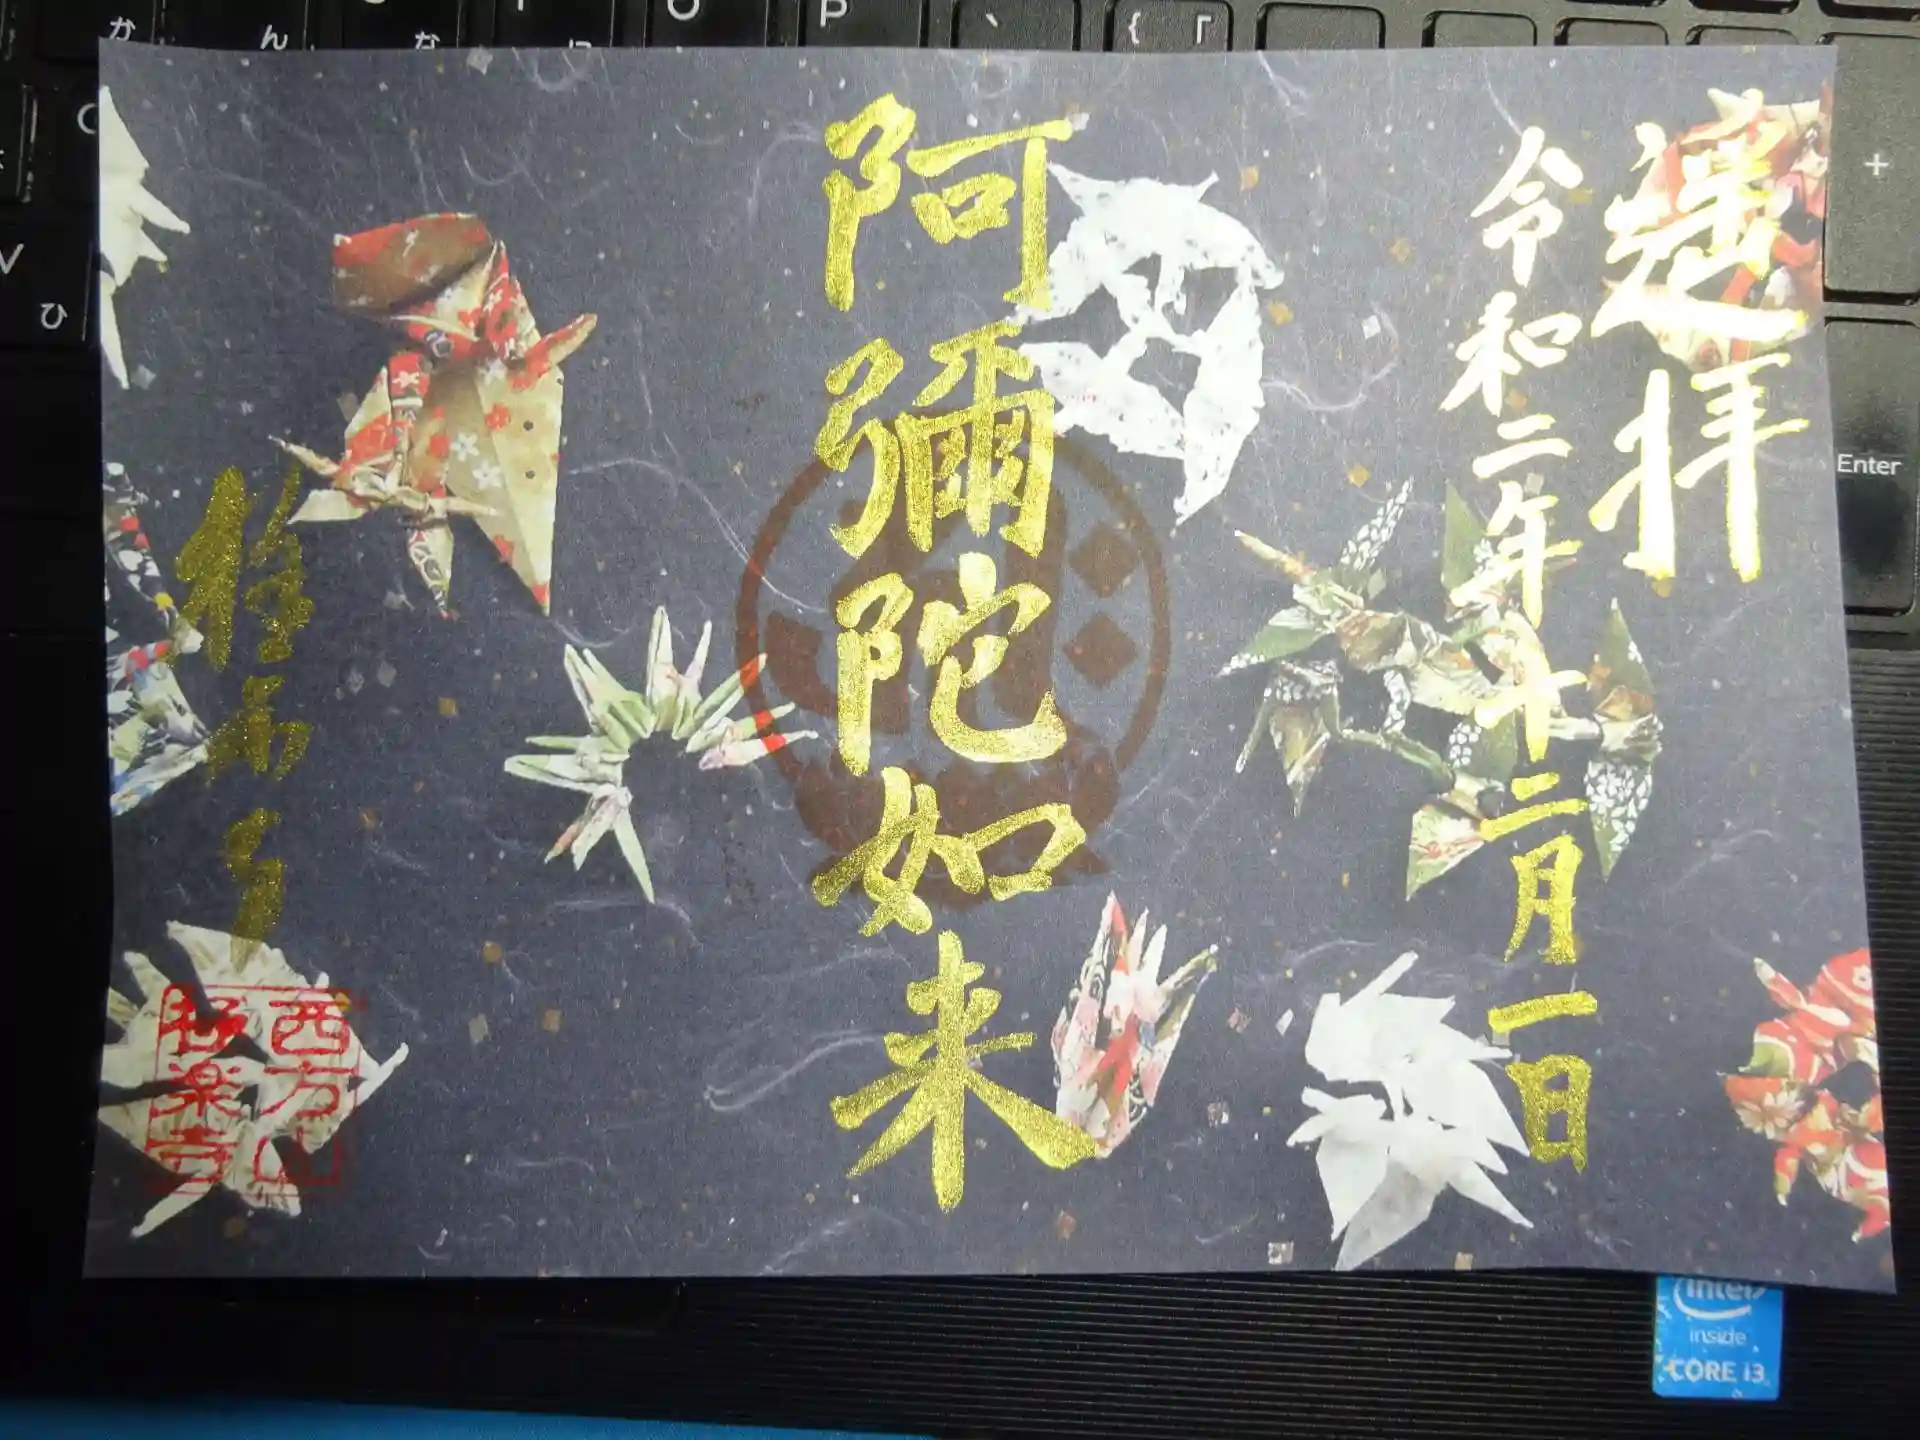 遥拝
令和二年十二月一日
阿彌陀如来
極楽寺
西方山
極楽寺
か
ん
な
に
O
P
{ 「
+
Enter
V
ひ
intel
inside
CORE i3